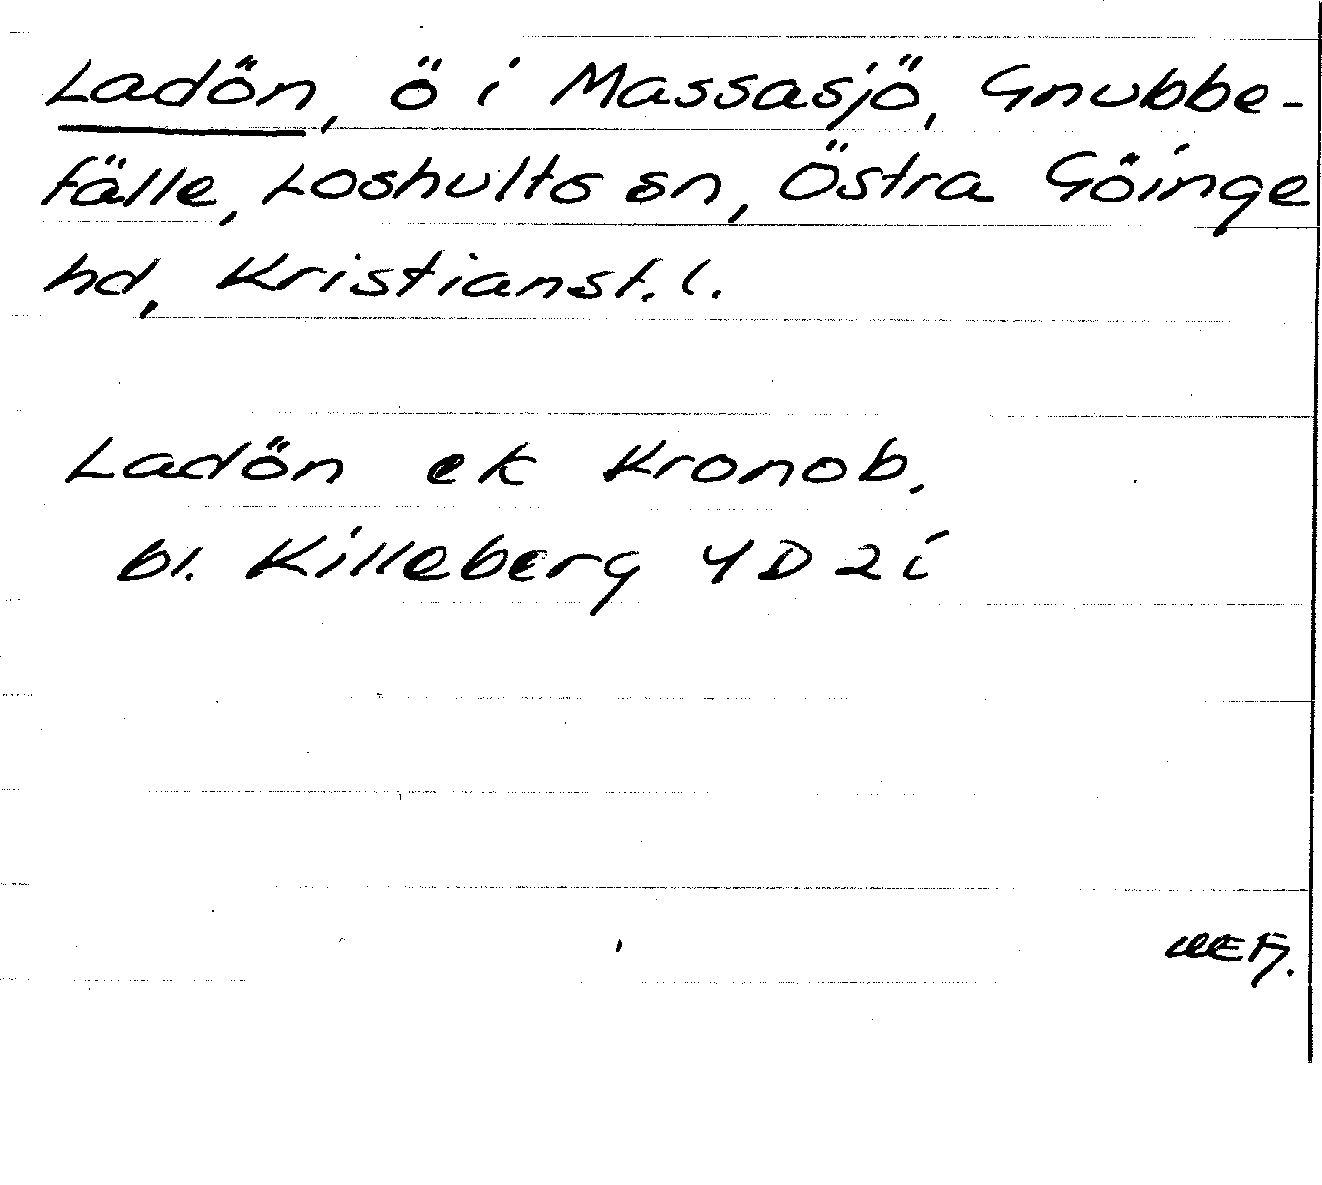 Ladön, ö i Massasjö, Gnubbe-
fälle, Loshults sn, Östra Göinge
hd, Kristianst. l.
Ladön ek Kronob.
bl. Killeberg 4D 2i